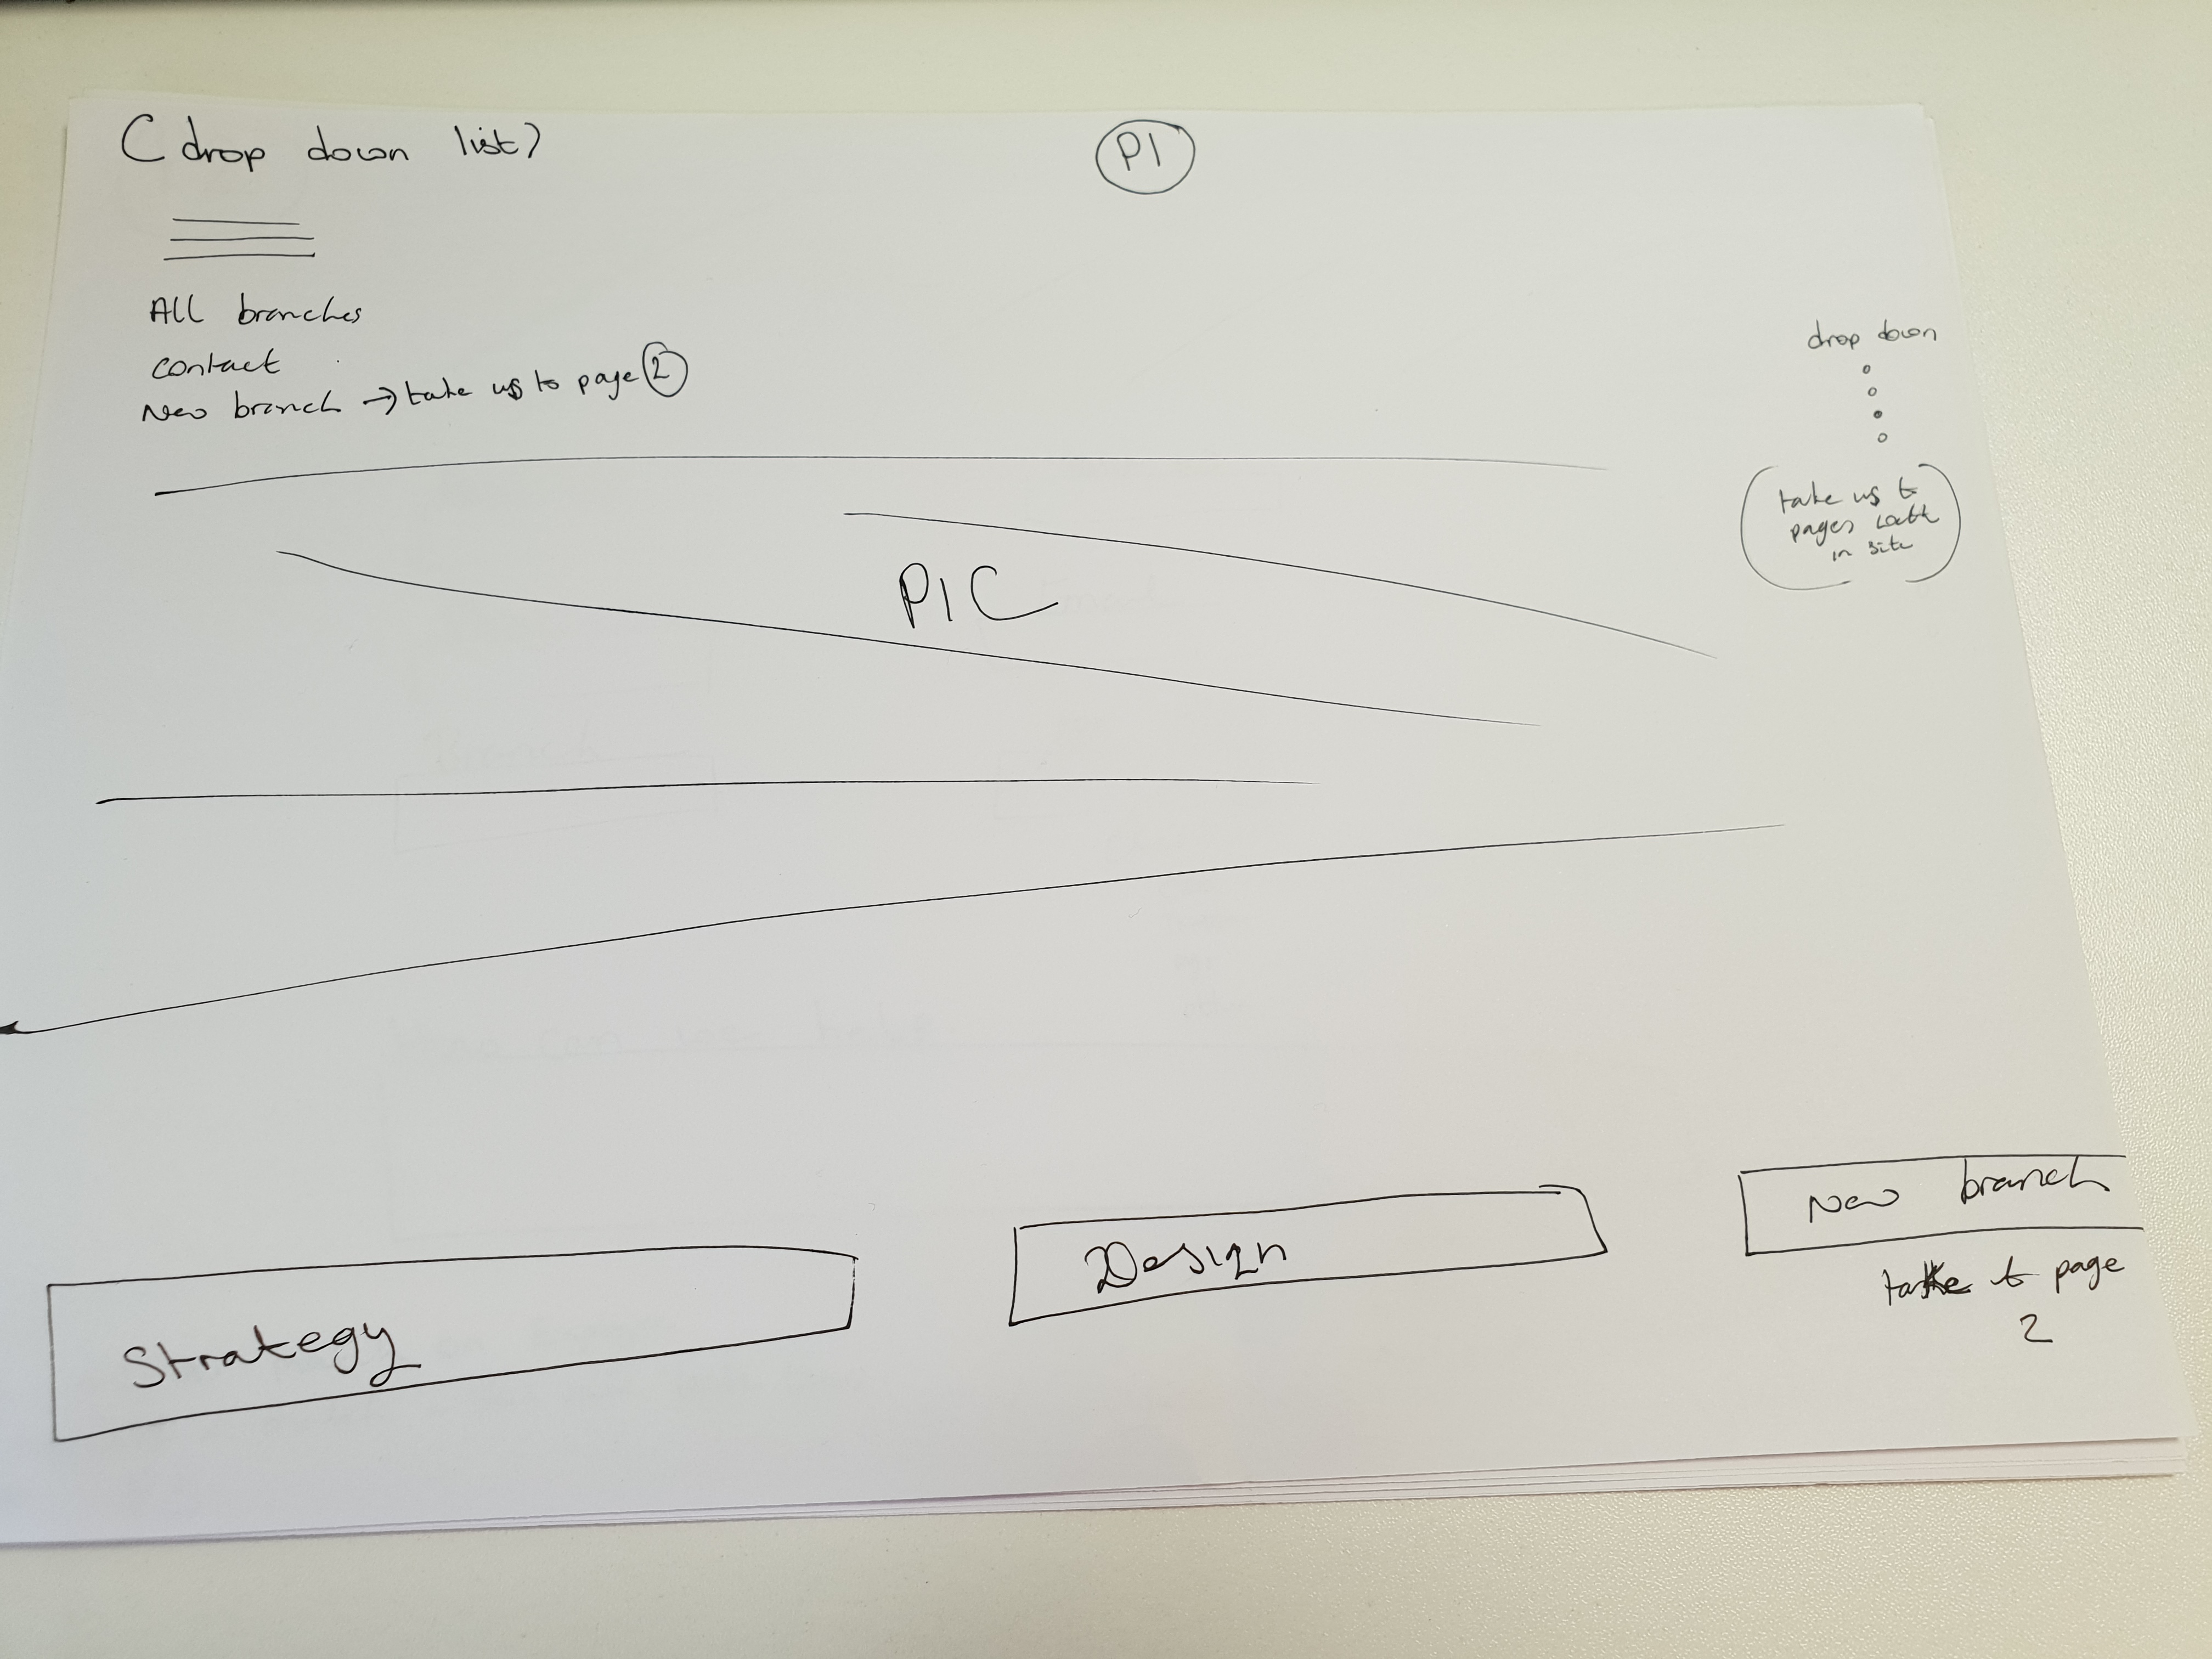 (drop down list)
P1
All branches
contact
New branch → take us to page 2
drop down
take us to
pages
in site
PIC
Strategy
Design
New branch
take to page
2